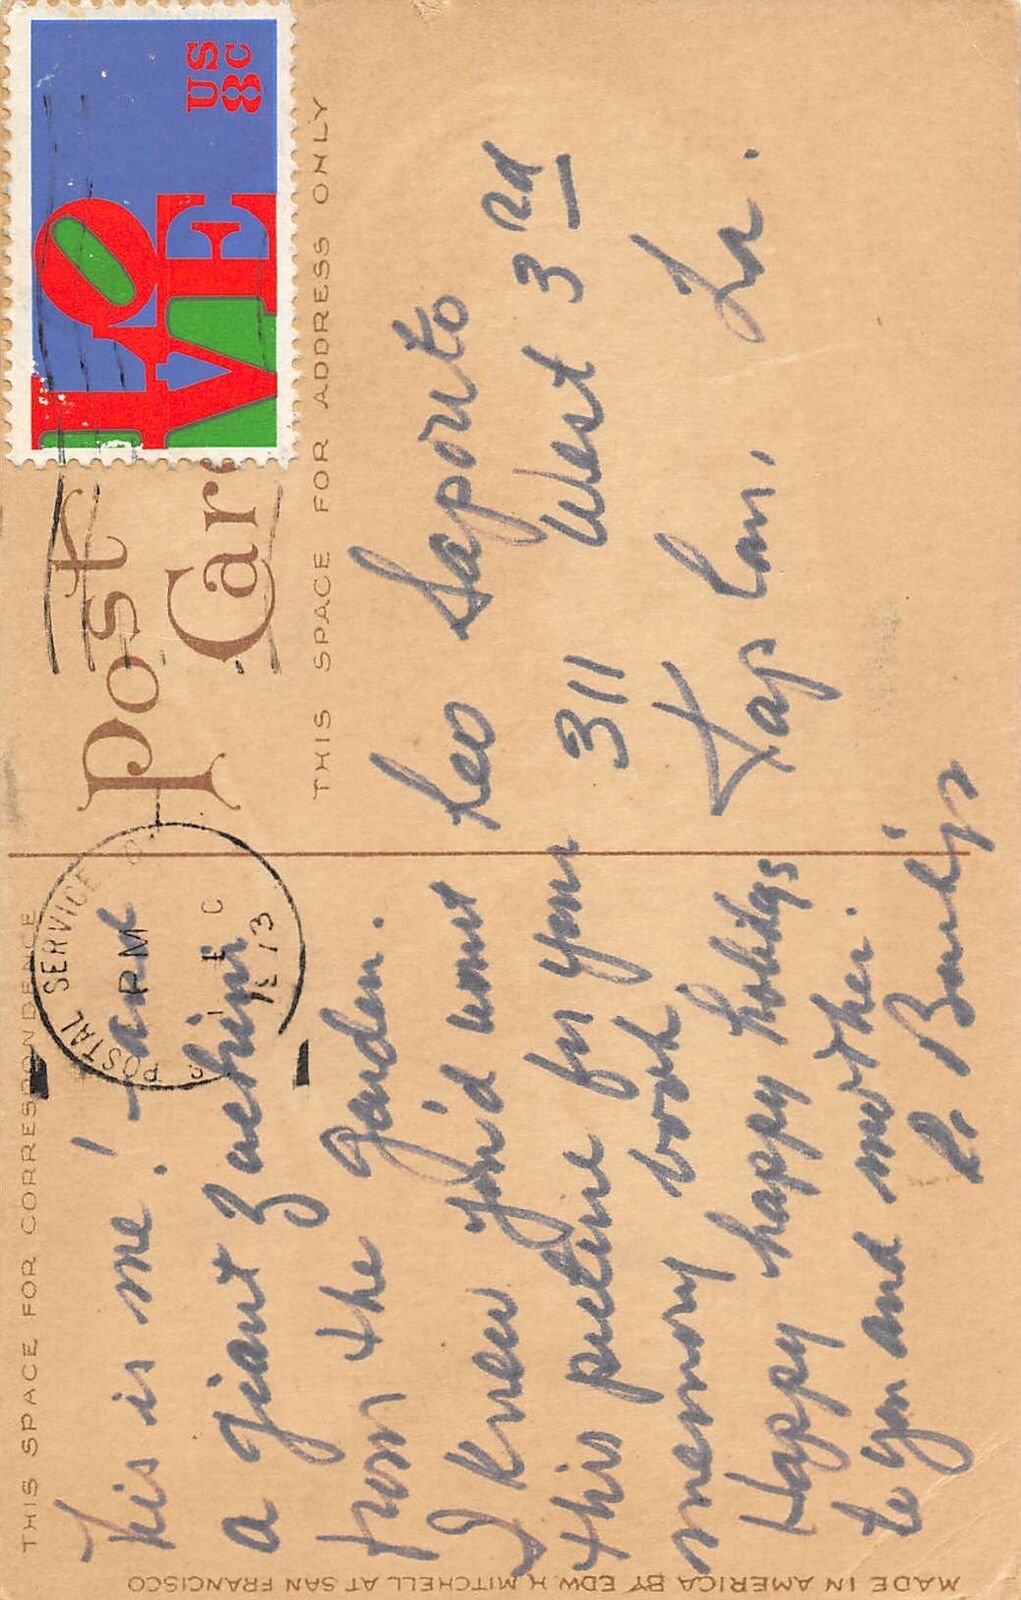 THIS SPACE FOR CORRESPONDENCE
This is me! and
a giant Zuchini
from the Garden.
I knew you'd want
this picture for your
memory book
Happy happy holidays
to you and mother.
R.
Post
Car
THIS SPACE FOR ADDRESS ONLY
Leo Saporito
311 West 3rd
US
8c
LOVE
POSTAL SERVICE
PM
MADE IN AMERICA BY EDW H MITCHELL AT SAN FRANCISCO